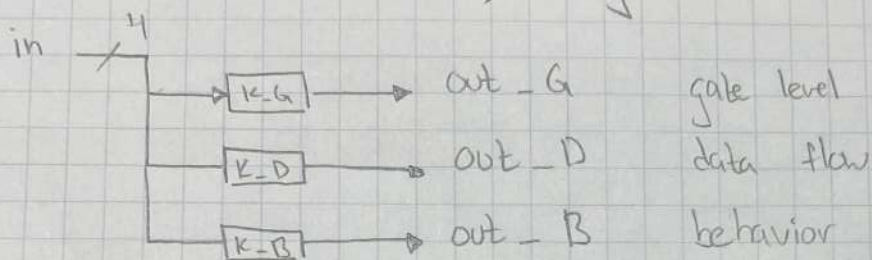 4
in
K_G out_G gate level
K_D out_D data flow
K_B out_B behavior